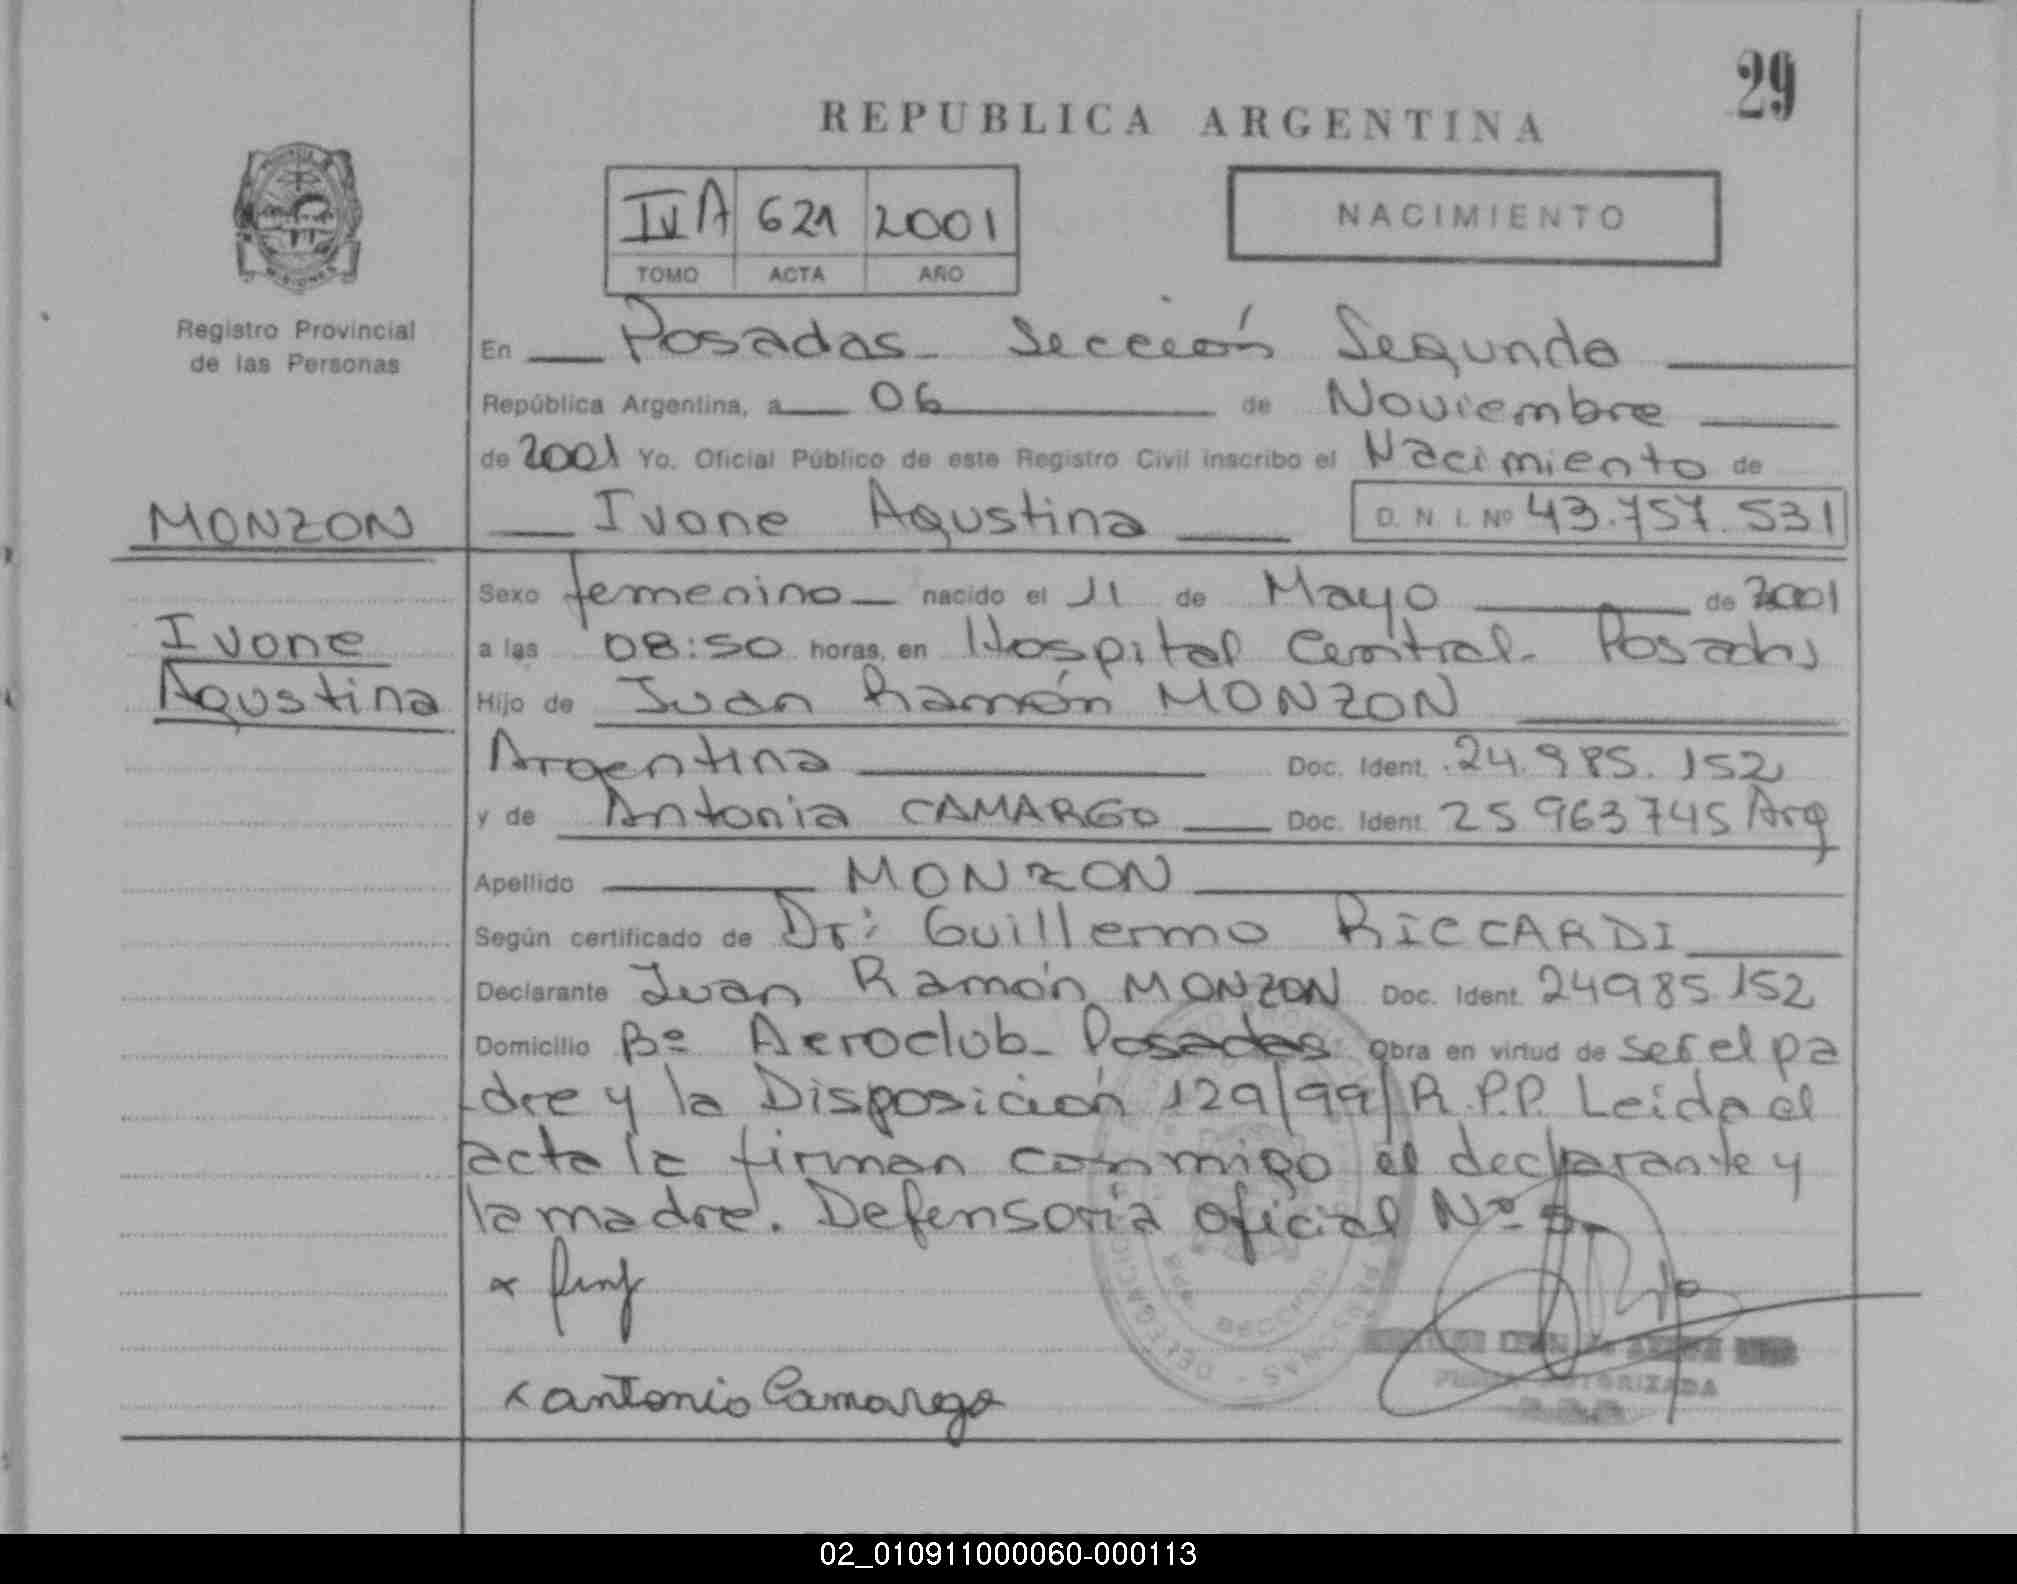 29
REPUBLICA ARGENTINA
IV A 621 2001
TOMO ACTA AÑO
NACIMIENTO
Registro Provincial
de las Personas
En Posadas - Sección Segunda
República Argentina, a 06 de Noviembre
de 2001 Yo. Oficial Público de este Registro Civil inscribo el Nacimiento de
MONZON
Ivone Agustina D. N. I. Nº 43.757.531
Sexo femenino nacido el 11 de Mayo de 2001
Ivone
Agustina
a las 08:50 horas, en Hospital Central - Posadas
Hijo de Juan Ramón MONZON
Argentina Doc. Ident. 24.985.152
y de Antonia CAMARGO Doc. Ident. 25963745 Arg
Apellido MONZON
Según certificado de Dr: Guillermo RICCARDI
Declarante Juan Ramón MONZON Doc. Ident. 24985.152
Domicilio Bº Aeroclub - Posadas Obra en virtud de ser el pa
dre y la Disposición 129/99/R.P.P. Leida el
acta la firman conmigo el declarante y
la madre. Defensoria Oficial Nº
x
x antonio Camarego
FIRMA AUTORIZADA
02_010911000060-000113